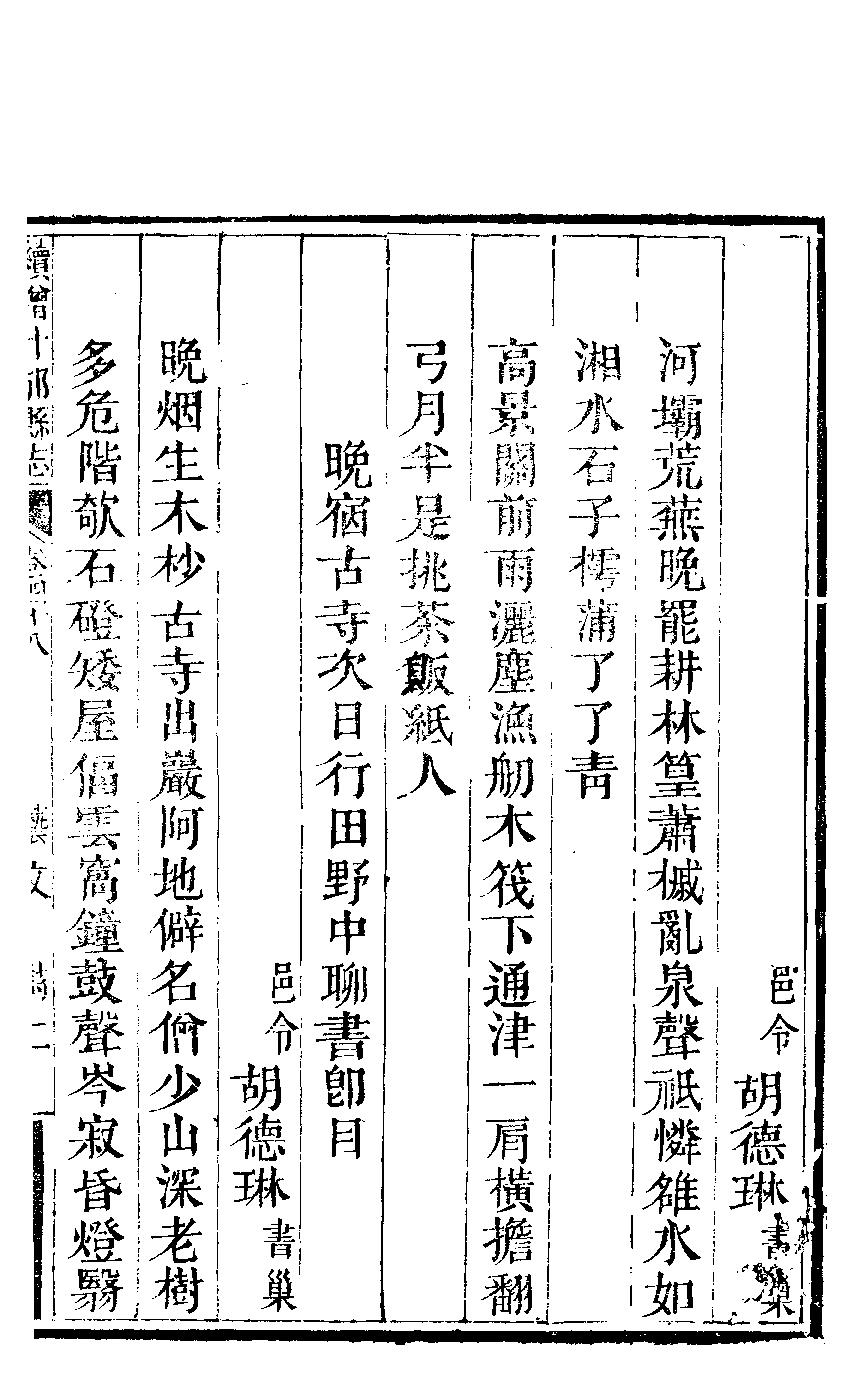 邑令胡德琳書巢
河壩荒蕪晚罷耕林篁蕭槭亂泉聲祗憐雒水如
湘水石子樗蒲了了青
高景關前雨灑塵漁舠木筏下通津一肩橫擔翻
弓月半是挑茶販紙人
晚宿古寺次日行田野中聊書卽目
邑令胡德琳書巢
晚烟生木杪古寺出巖阿地僻名僧少山深老樹
多危階欹石磴矮屋偪雲窩鐘鼓聲岑寂昏燈翳
續增什邡縣志
藝文
二